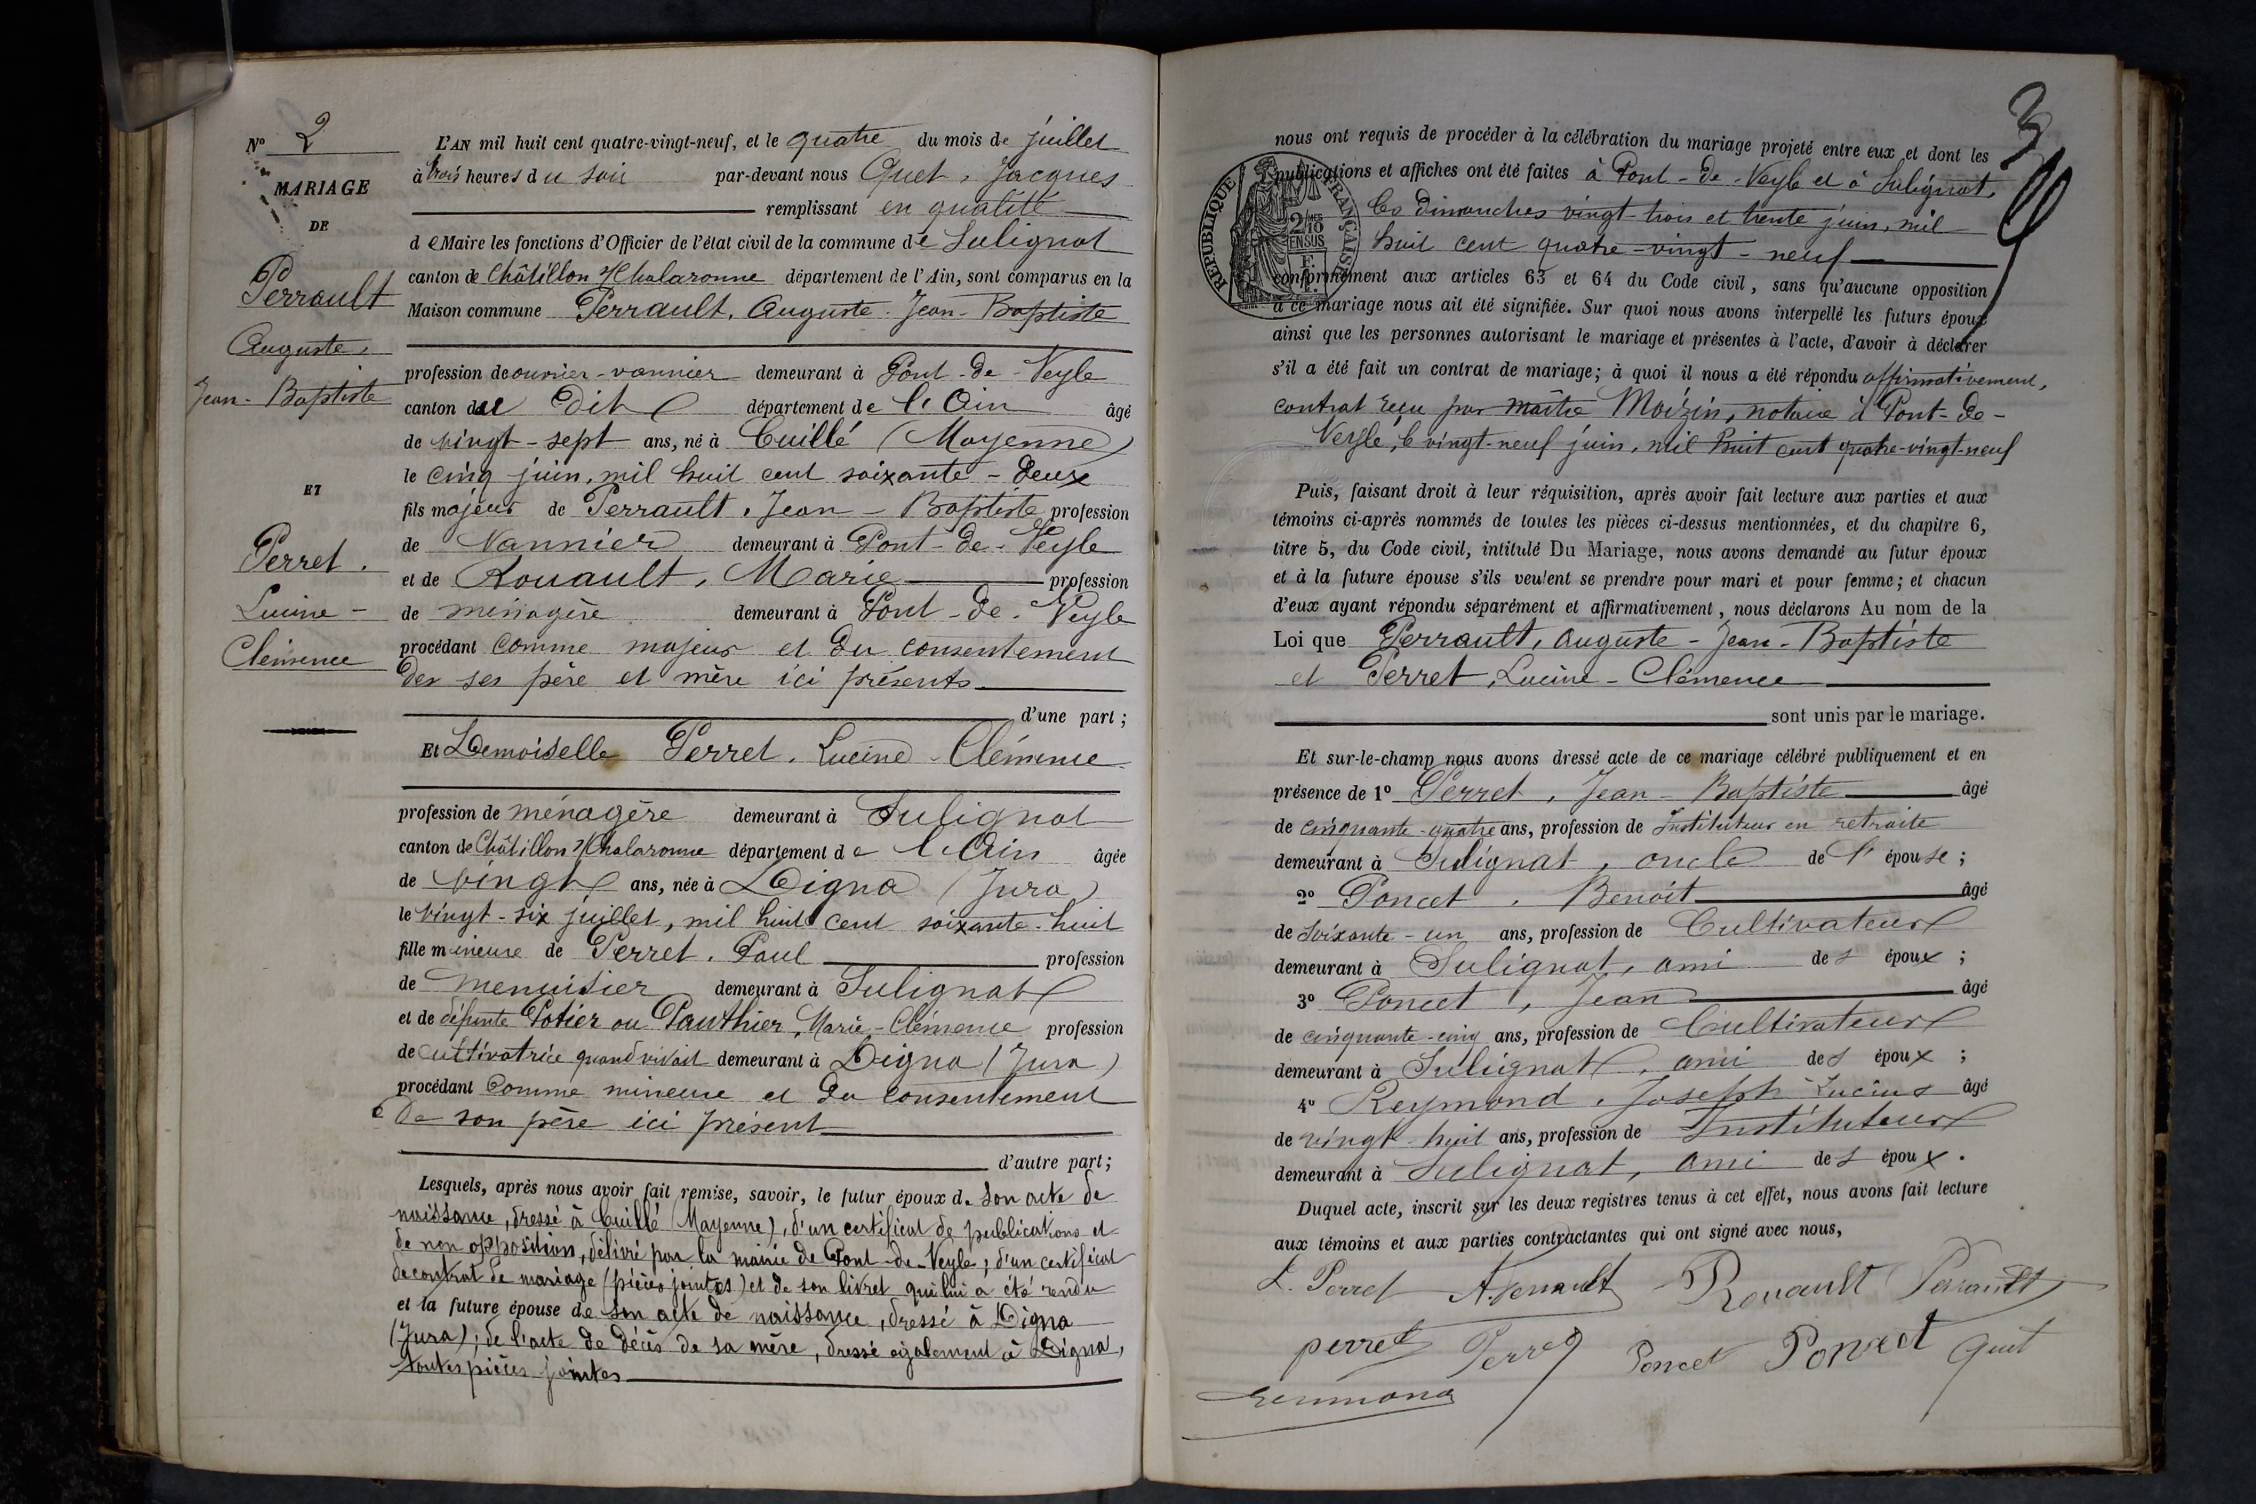 N° 2
MARIAGE
DE
Perrault
Auguste,
Jean-Baptiste
ET
Perret.
Lucine-
Clémence
L'AN mil huit cent quatre-vingt-neuf, et le quatre du mois de juillet
à trois heures du soir par-devant nous Quet, Jacques
remplissant en qualité
de Maire les fonctions d'Officier de l'état civil de la commune de Sulignat
canton de Châtillon s/Chalaronne département de l'Ain, sont comparus en la
Maison commune Perrault, Auguste-Jean-Baptiste
profession de ouvrier-vannier demeurant à Pont-de-Veyle
canton du dit département de l'Ain âgé
de vingt-sept ans, né à Cuillé (Mayenne)
le cinq juin, mil huit cent soixante-deux
fils majeur de Perrault, Jean-Baptiste profession
de Vannier demeurant à Pont-de-Veyle
et de Rouault, Marie profession
de ménagère demeurant à Pont-de-Veyle
procédant comme majeur et du consentement
des ses père et mère ici présents
d'une part;
Et Demoiselle Perret, Lucine-Clémence
profession de ménagère demeurant à Sulignat
canton de Châtillon s/Chalaronne département de l'Ain âgée
de vingt ans, née à Digna (Jura)
le vingt-six juillet, mil huit cent soixante-huit
fille mineure de Perret, Paul profession
de menuisier demeurant à Sulignat
et de défunte Potier ou Pauthier, Marie-Clémence profession
de cultivatrice quand vivait demeurant à Digna (Jura)
procédant comme mineure et du consentement
de son père ici présent
d'autre part;
Lesquels, après nous avoir fait remise, savoir, le futur époux de son acte de
naissance, dressé à Cuillé (Mayenne), d'un certificat de publications et
de non opposition, délivré par la mairie de Pont-de-Veyle; d'un certificat
de contrat de mariage (pièces jointes) et de son livret qui lui a été rendu
et la future épouse de son acte de naissance, dressé à Digna
(Jura); de l'acte de décès de sa mère, dressé également à Digna,
toutes pièces jointes
3
nous ont requis de procéder à la célébration du mariage projeté entre eux et dont les
publications et affiches ont été faites à Pont-de-Veyle et à Sulignat,
les dimanches vingt-trois et trente juin, mil
huit cent quatre-vingt-neuf
RÉPUBLIQUE FRANÇAISE
2/10 EN SUS
conformément aux articles 63 et 64 du Code civil, sans qu'aucune opposition
à ce mariage nous ait été signifiée. Sur quoi nous avons interpellé les futurs époux
ainsi que les personnes autorisant le mariage et présentes à l'acte, d'avoir à déclarer
s'il a été fait un contrat de mariage; à quoi il nous a été répondu affirmativement,
contrat reçu par maître Moizin, notaire à Pont-de-
Veyle, le vingt-neuf juin, mil huit cent quatre-vingt-neuf
Puis, faisant droit à leur réquisition, après avoir fait lecture aux parties et aux
témoins ci-après nommés de toutes les pièces ci-dessus mentionnées, et du chapitre 6,
titre 5, du Code civil, intitulé Du Mariage, nous avons demandé au futur époux
et à la future épouse s'ils veulent se prendre pour mari et pour femme; et chacun
d'eux ayant répondu séparément et affirmativement, nous déclarons Au nom de la
Loi que Perrault, Auguste-Jean-Baptiste
et Perret, Lucine-Clémence
sont unis par le mariage.
Et sur-le-champ nous avons dressé acte de ce mariage célébré publiquement et en
présence de 1° Perret, Jean-Baptiste âgé
de cinquante-quatre ans, profession de Instituteur en retraite
demeurant à Sulignat, oncle de l'épouse;
2° Poncet, Benoit âgé
de soixante-un ans, profession de Cultivateur
demeurant à Sulignat, ami des époux;
3° Poncet, Jean âgé
de cinquante-cinq ans, profession de Cultivateur
demeurant à Sulignat, ami des époux;
4° Reymond, Joseph-Lucius âgé
de vingt-huit ans, profession de Instituteur
demeurant à Sulignat, ami des époux.
Duquel acte, inscrit sur les deux registres tenus à cet effet, nous avons fait lecture
aux témoins et aux parties contractantes qui ont signé avec nous,
L. Perret A. Perrault Rouault Perrault
perret Perret Poncet Poncet Quet
Reymond